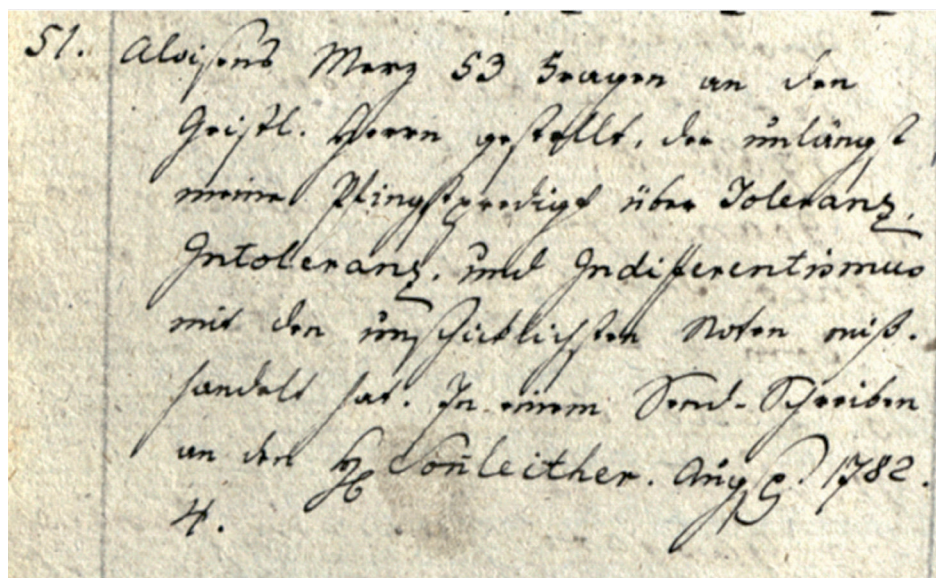 51. Aloisens Merz 53 Fragen an den
Geistl. Herrn gestellt, der unlängst
meine Pfingstpredigt über Toleranz,
Intoleranz, und Indifferentismus
mit den unschicklichsten Noten miß-
handelt hat. In einem Send-Schreiben
an den H Soñleither. Augsb. 1782.
4.